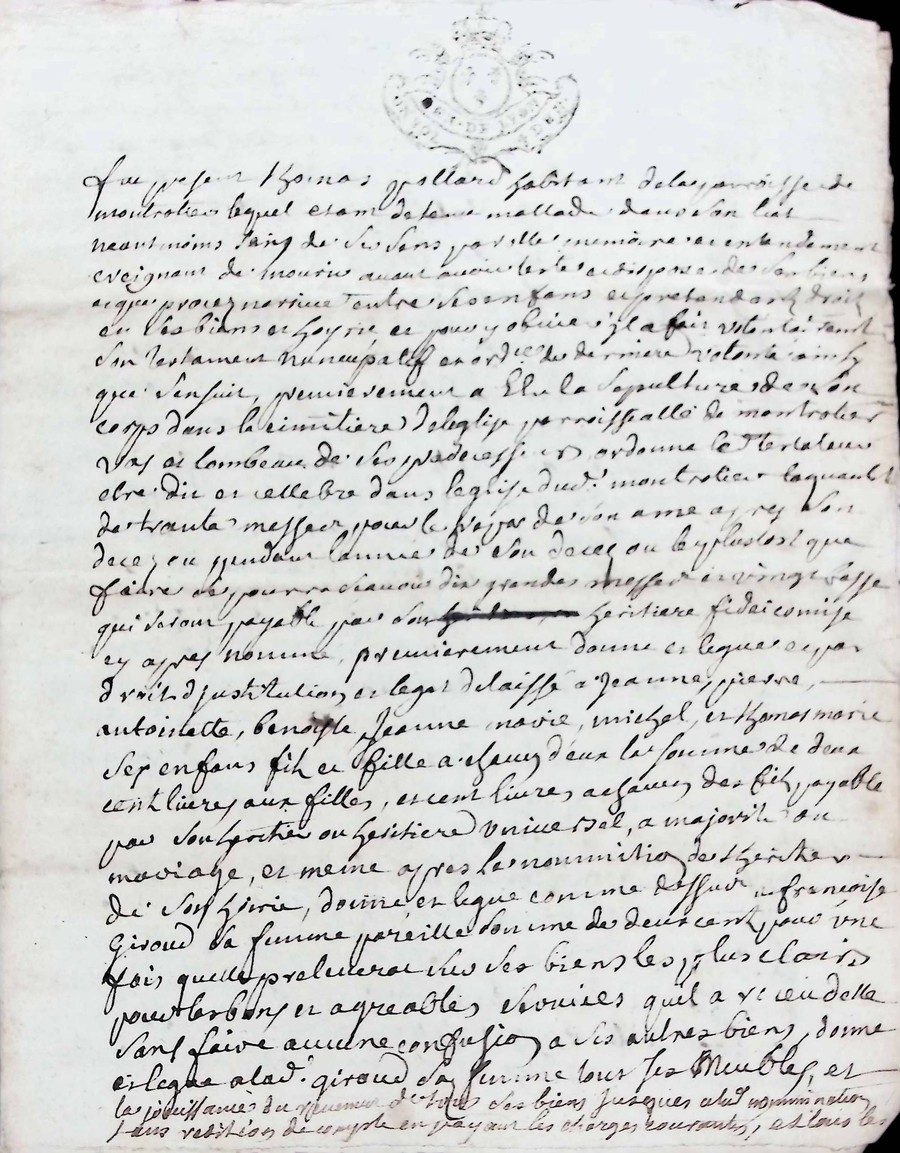 GEN. DE LYON
fut present thomas pollard habitant de la parroisse de
montrotier lequel etant detenu mallade dans son lict
neantmoins sainq de ses sens parolle memoire et entendement
creignant de mourir avant avoir testé et disposé de ses biens
et que procez n'arrive entre ses enfans et pretendants droit
en ses biens et hoyrie et pour y obvier il a fait
son testament nuncupatif et ord.ce de derniere volonté ainsy
que s'ensuit, premierement a Elu la sepulture de son
corps dans le cimitiere de leglise parroissialle de montrotier
vas et tombeau de ses predecesseurs, ordonne le Testateur
etre dit et cellebré dans leglise dud.t montrotier laquantité
de trante messes pour le repos de son ame apres son
decez ou pendant lannée de son decez ou le plustost que
faire ce pourra scavoir dix grandes messes et vingt basse
qui seront payable par son heritiere fideicomise
cy apres nommé, premierement donne et legue et par
droit d'justitution et legat delaissé a Jeanne, pierre,
antoinette, benoiste, Jeanne marie, michel, et thomas marie
ses enfans fils et fille a chacun d'eux la somme de deux
cent livres aux filles, et cent livres a chacun des fils, payable
par son heritier ou heritiere universel, a majorité ou
mariage, et meme apres la nommination de l'heritier
de son hirie, donne et legue comme dessus a francoise
Giroud sa femme pareille somme de deux cent, pour une
fois quelle prelevera sur ses biens les plus clairs
pour les bons et agreables services quil a receu delle
sans faire aucune confusion a ses autres biens, donne
et legue a lad.e giroud sa femme tous ses Meubles, et
la jouissance du revenu de tous ses biens jusques a lad. nommination
sans redition de compte en payant les charges courantes, et tous les